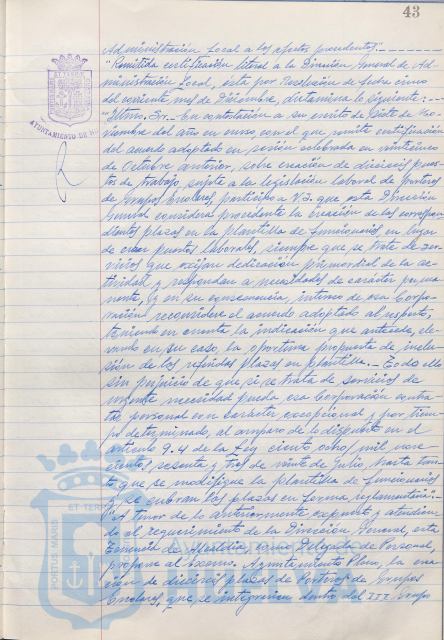 43
Administración Local a los efectos procedentes".
"Remitida certificación literal a la Dirección General de Ad-
ministración Local, ésta por Resolución de fecha cinco
del corriente mes de Diciembre, dictamina lo siguiente:
"Iltmo. Sr.- En contestación a su escrito de siete de No-
viembre del año en curso con el que remite certificación
del acuerdo adoptado en sesión celebrada en veinticinco
de Octubre anterior, sobre creación de dieciseis pues-
tos de trabajo, sujeto a la legislación laboral de Porteros
de Grupos Escolares, participo a V.I. que esta Dirección
General considera procedente la creación de las correspon-
dientes plazas en la Plantilla de funcionarios en lugar
de crear puestos laborales, siempre que se trate de ser-
vicios que exijan dedicación primordial de la ac-
tividad y respondan a necesidades de carácter perma-
nente, y en su consecuencia, intereso de esa Corpo-
ración reconsidere el acuerdo adoptado al respecto,
teniendo en cuenta la indicación que antecede, ele-
vando en su caso, la oportuna propuesta de inclu-
sión de las referidas plazas en plantilla.- Todo ello
sin perjuicio de que si se trata de servicios de
urgente necesidad pueda esa Corporación contra-
tar personal con carácter excepcional y por tiem-
po determinado, al amparo de lo dispuesto en el
artículo 9.4 de la Ley ciento ocho/ mil nove-
cientos sesenta y tres de veinte de Julio, hasta tan-
to que se modifique la plantilla de funcionarios
y se cubran las plazas en forma reglamentaria".
"A tenor de lo anteriormente expuesto y atendien-
do al requerimiento de la Dirección General, esta
Tenencia de Alcaldía, como Delegada de Personal,
propone al Excmo. Ayuntamiento Pleno, la crea-
ción de dieciseis plazas de Porteros de Grupos
Escolares, que se integrarían dentro del III Grupo
AYUNTAMIENTO DE H
PORTUS MARIS
ET TERR